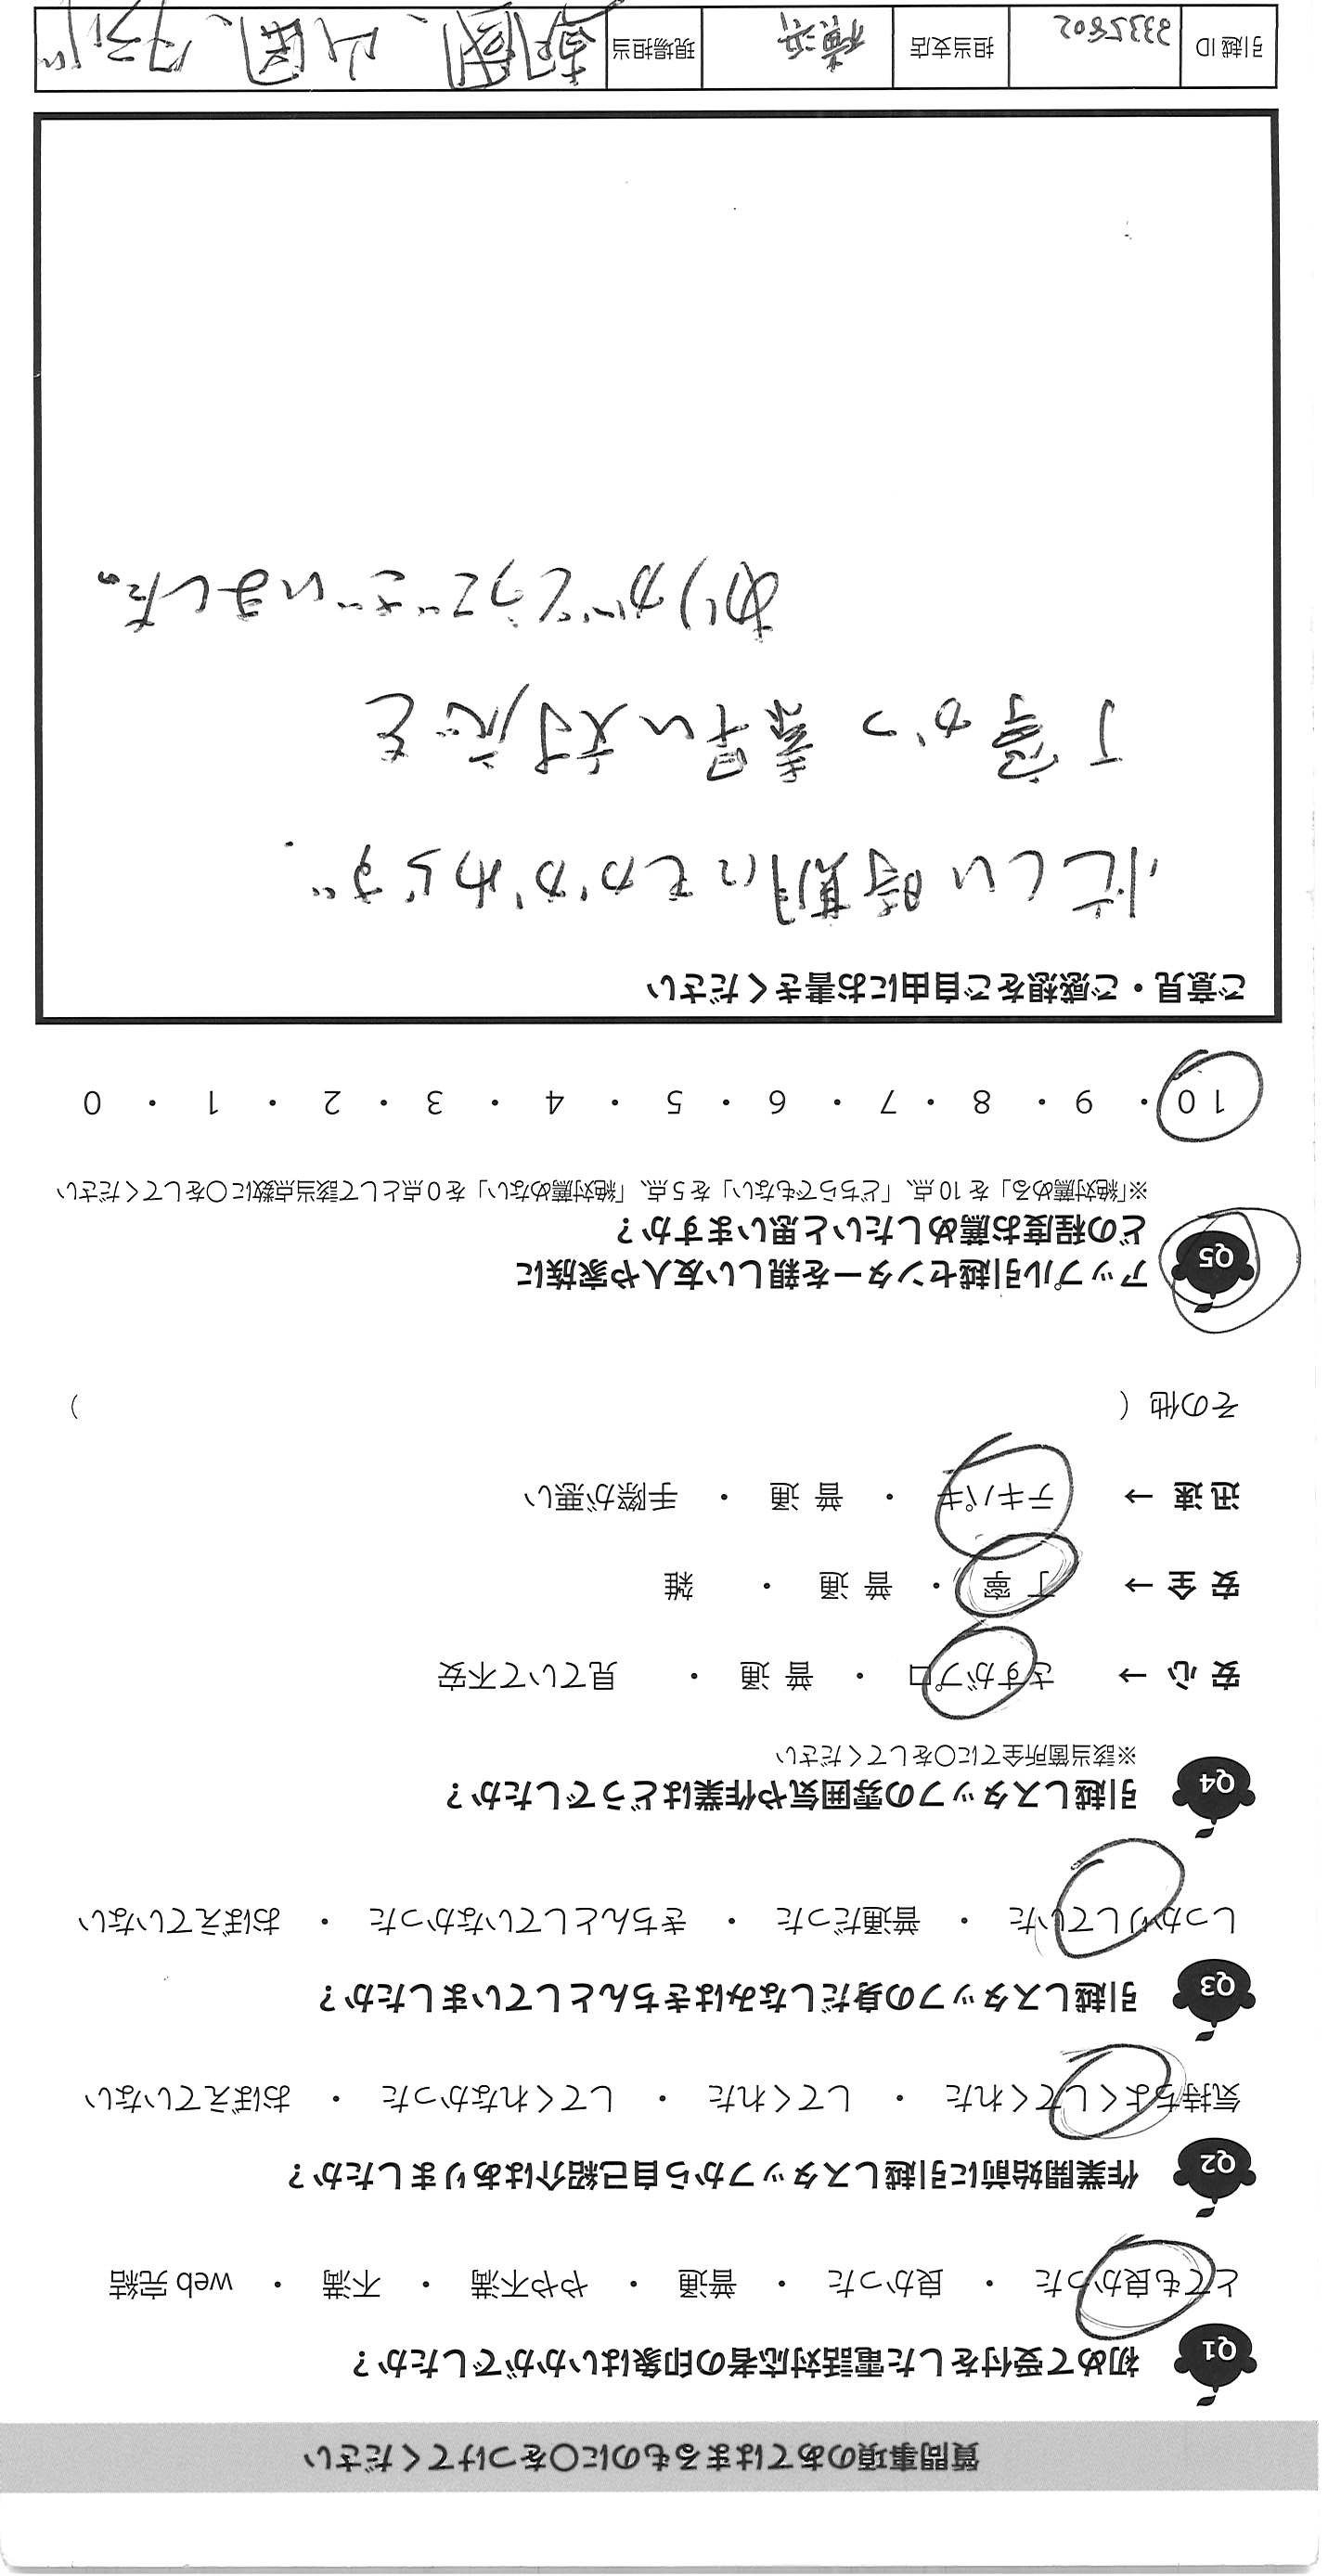 質問事項のあてはまるものに○をつけてください
Q1 初めて受付をした電話対応者の印象はいかがでしたか？
とても良かった ・ 良かった ・ 普通 ・ やや不満 ・ 不満 ・ web 完結
Q2 作業開始前に引越しスタッフから自己紹介はありましたか？
気持ちよくしてくれた ・ してくれた ・ してくれなかった ・ おぼえていない
Q3 引越しスタッフの身だしなみはきちんとしていましたか？
しっかりしていた ・ 普通だった ・ きちんとしていなかった ・ おぼえていない
Q4 引越しスタッフの雰囲気や作業はどうでしたか？
※該当箇所全てに○をしてください
安 心 → さすがプロ ・ 普 通 ・ 見ていて不安
安 全 → 丁 寧 ・ 普 通 ・ 雑
迅 速 → テキパキ ・ 普 通 ・ 手際が悪い
その他（ ）
Q5 アップル引越センターを親しい友人や家族に
どの程度お薦めしたいと思いますか？
※「絶対薦める」を 10 点、「どちらでもない」を 5 点、「絶対薦めない」を 0 点として該当点数に○をしてください
10 ・ 9 ・ 8 ・ 7 ・ 6 ・ 5 ・ 4 ・ 3 ・ 2 ・ 1 ・ 0
ご意見・ご感想をご自由にお書きください
忙しい時期にもかかわらず、
丁寧かつ素早い対応を
ありがとうございました。
引越 ID 3335802 担当支店 横浜 現場担当 山岡、